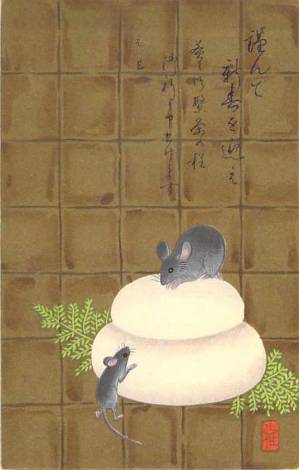 謹んで
新春を迎え
益々御繁栄の程
御祈り申上げます
元旦